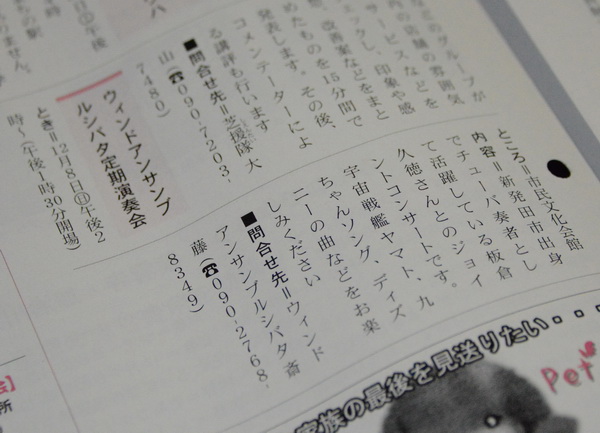 のグループが
の店舗の雰囲気
サービスなどを
ックし、印象や感
改善案などをまと
めたものを15分間で
発表します。その後、
コメンテーターによ
る講評も行います
■問合せ先＝芝援隊大
山(☎090-7203-
7480)
ウィンドアンサンブ
ルシバタ定期演奏会
とき＝12月8日㊐午後2
時～(午後1時30分開場)
ところ＝市民文化会館
内容＝新発田市出身
でチューバ奏者とし
て活躍している板倉
久徳さんとのジョイ
ントコンサートです。
宇宙戦艦ヤマト、九
ちゃんソング、ディズ
ニーの曲などをお楽
しみください
■問合せ先＝ウィンド
アンサンブルシバタ斎
藤(☎090-2768-
8349)
家族の最後を見送りたい・・・
Pet